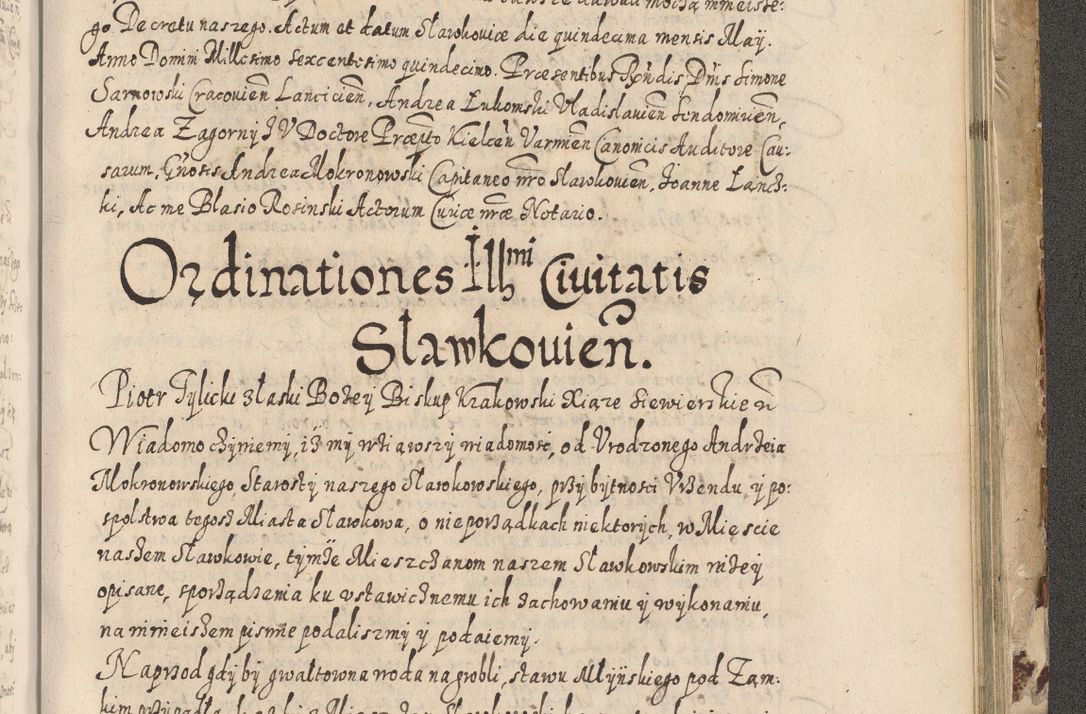 go Decretu naszego. Actum et datum Sławkoviæ die quindecima mensis Maÿ.
Anno Domini Millesimo sexcentesimo quindecimo. Præsentibus Rñdis Dñis Simone
Sarnowski Cracovien̄ Lancicien̄, Andrea Łukomski Vladislavien̄ Sendomirien̄,
Andrea Zagorny I V Doctore Præp̄to Kielcen̄ Varmien̄ Canonicis Auditore Cau:
sarum, Gn̄osis Andrea Mokronowski Capitaneo n̄ro Slawkovien̄, Joanne Lancz:
ki, Ac me Blasio Rosinski Actorum Curiæ n̄ræ Notario.
Ordinationes Ill̄mi Ciuitatis
Slawkouien̄.
Piotr Tylicki z łaski Bozey Biskup Krakowski Xiąze Siewierskie n̄
Wiadomo czyniemy, iz my wziąwszy wiadomość, od Vrodzonego Andrzeia
Mokronowskiego, Starosty naszego Sławkowskiego, przy bytnosci Vrzendu y po:
spolstwa tegosz Miasta Sławkowa, o nieporządkach niektorych, w Miescie
naszem Sławkowie, tymze Mieszczanom naszem Sławkowskim nizey
opisane, sporządzenia ku vstawicznemu ich zachowaniu y wykonaniu,
na ninieiszem pismie podaliszmy y podaiemy.
Naprzod gdyby gwałtowna woda na grobli, stawu Młyńskiego pod Zam:
kim przypadła